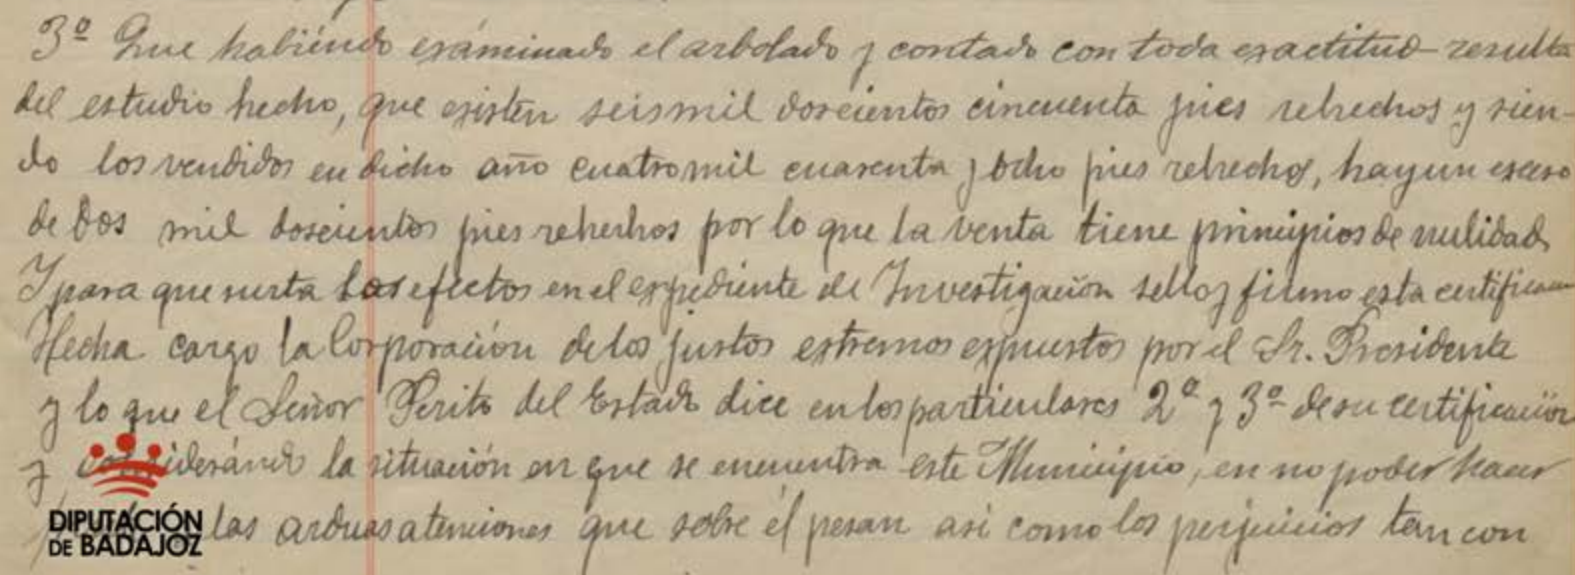 3º Que habiéndo exáminado el arbolado y contado con toda exactitud resulta
del estudio hecho, que existen seismil doscientos cincuenta pies rehechos y sien-
do los vendidos en dicho año cuatromil cuarenta y ocho pies rehechos, hay un exceso
de dos mil doscientos pies rehechos por lo que la venta tiene principios de nulidad
Y para que surta los efectos en el expediente de Investigación sello y firmo esta certificación
Hecha cargo la Corporación de los justos estremos expuestos por el Sr. Presidente
y lo que el Señor Perito del Estado dice en los particulares 2º y 3º de su certificación
y considerándo la situación en que se encuentra este Municipio, en no poder hacer
las arduas atenciones que sobre él pesan asi como los perjuicios tan con
DIPUTACIÓN
DE BADAJOZ